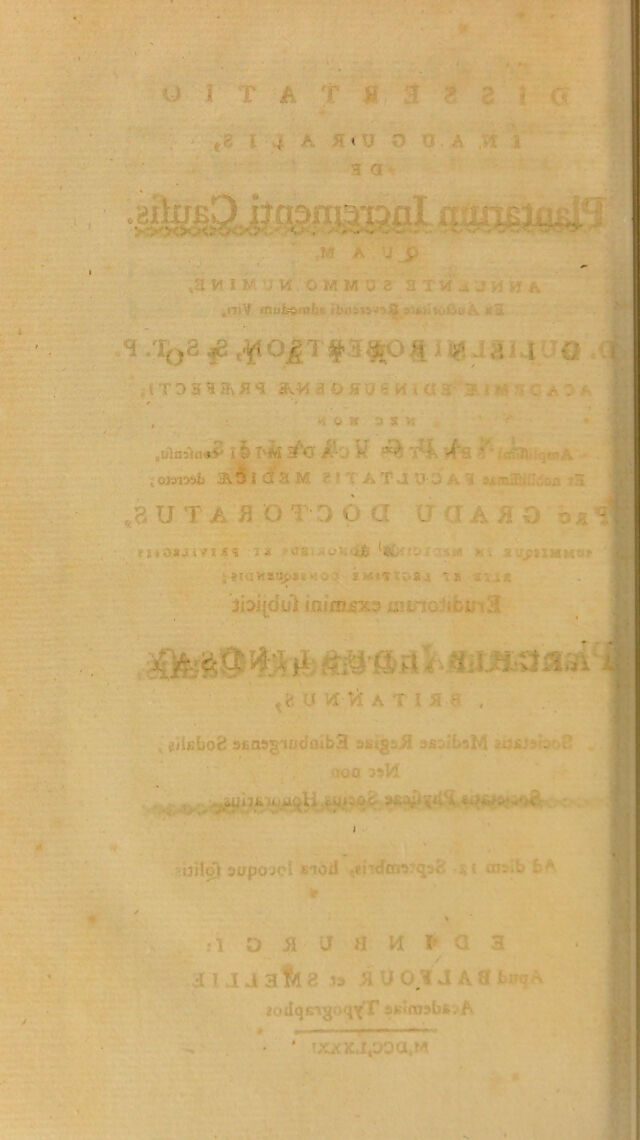 DISSERTATIO
INAUGURALIS,
DE
Plantarum Incrementi Causis.
QUAM,
ANNUENTE SUMMO NUMINE,
Ex Auctoritate Reverendi admodum Viri,
D. GULIELMI ROBERTSON, S. S. T. P.
ACADEMIÆ EDINBURGENÆ PRÆFECTI;
NEC NON
Amplissimi SENATUS ACADEMICI consensu,
Et nobilissimae FACULTATIS MEDICÆ decreto;
PRO GRADU DOCTORATUS,
SUMMISQUE IN MEDICINA HONORIBUS ET PRIVILEGIIS
RITE ET LEGITIME CONSEQUENDIS;
Eruditorum examini subjicit
BRITANNUS,
Societatis Medicae Regiae Edinburgenae Sodalis,
Nec non
Societatis Physicae Socius Honorarius.
Ad diem 12. Septembris, hora locoque solitis.
EDINBURGI:
Apud BALFOUR et SMELLIE
Academiae Typographos
M,DCC,LXXXI